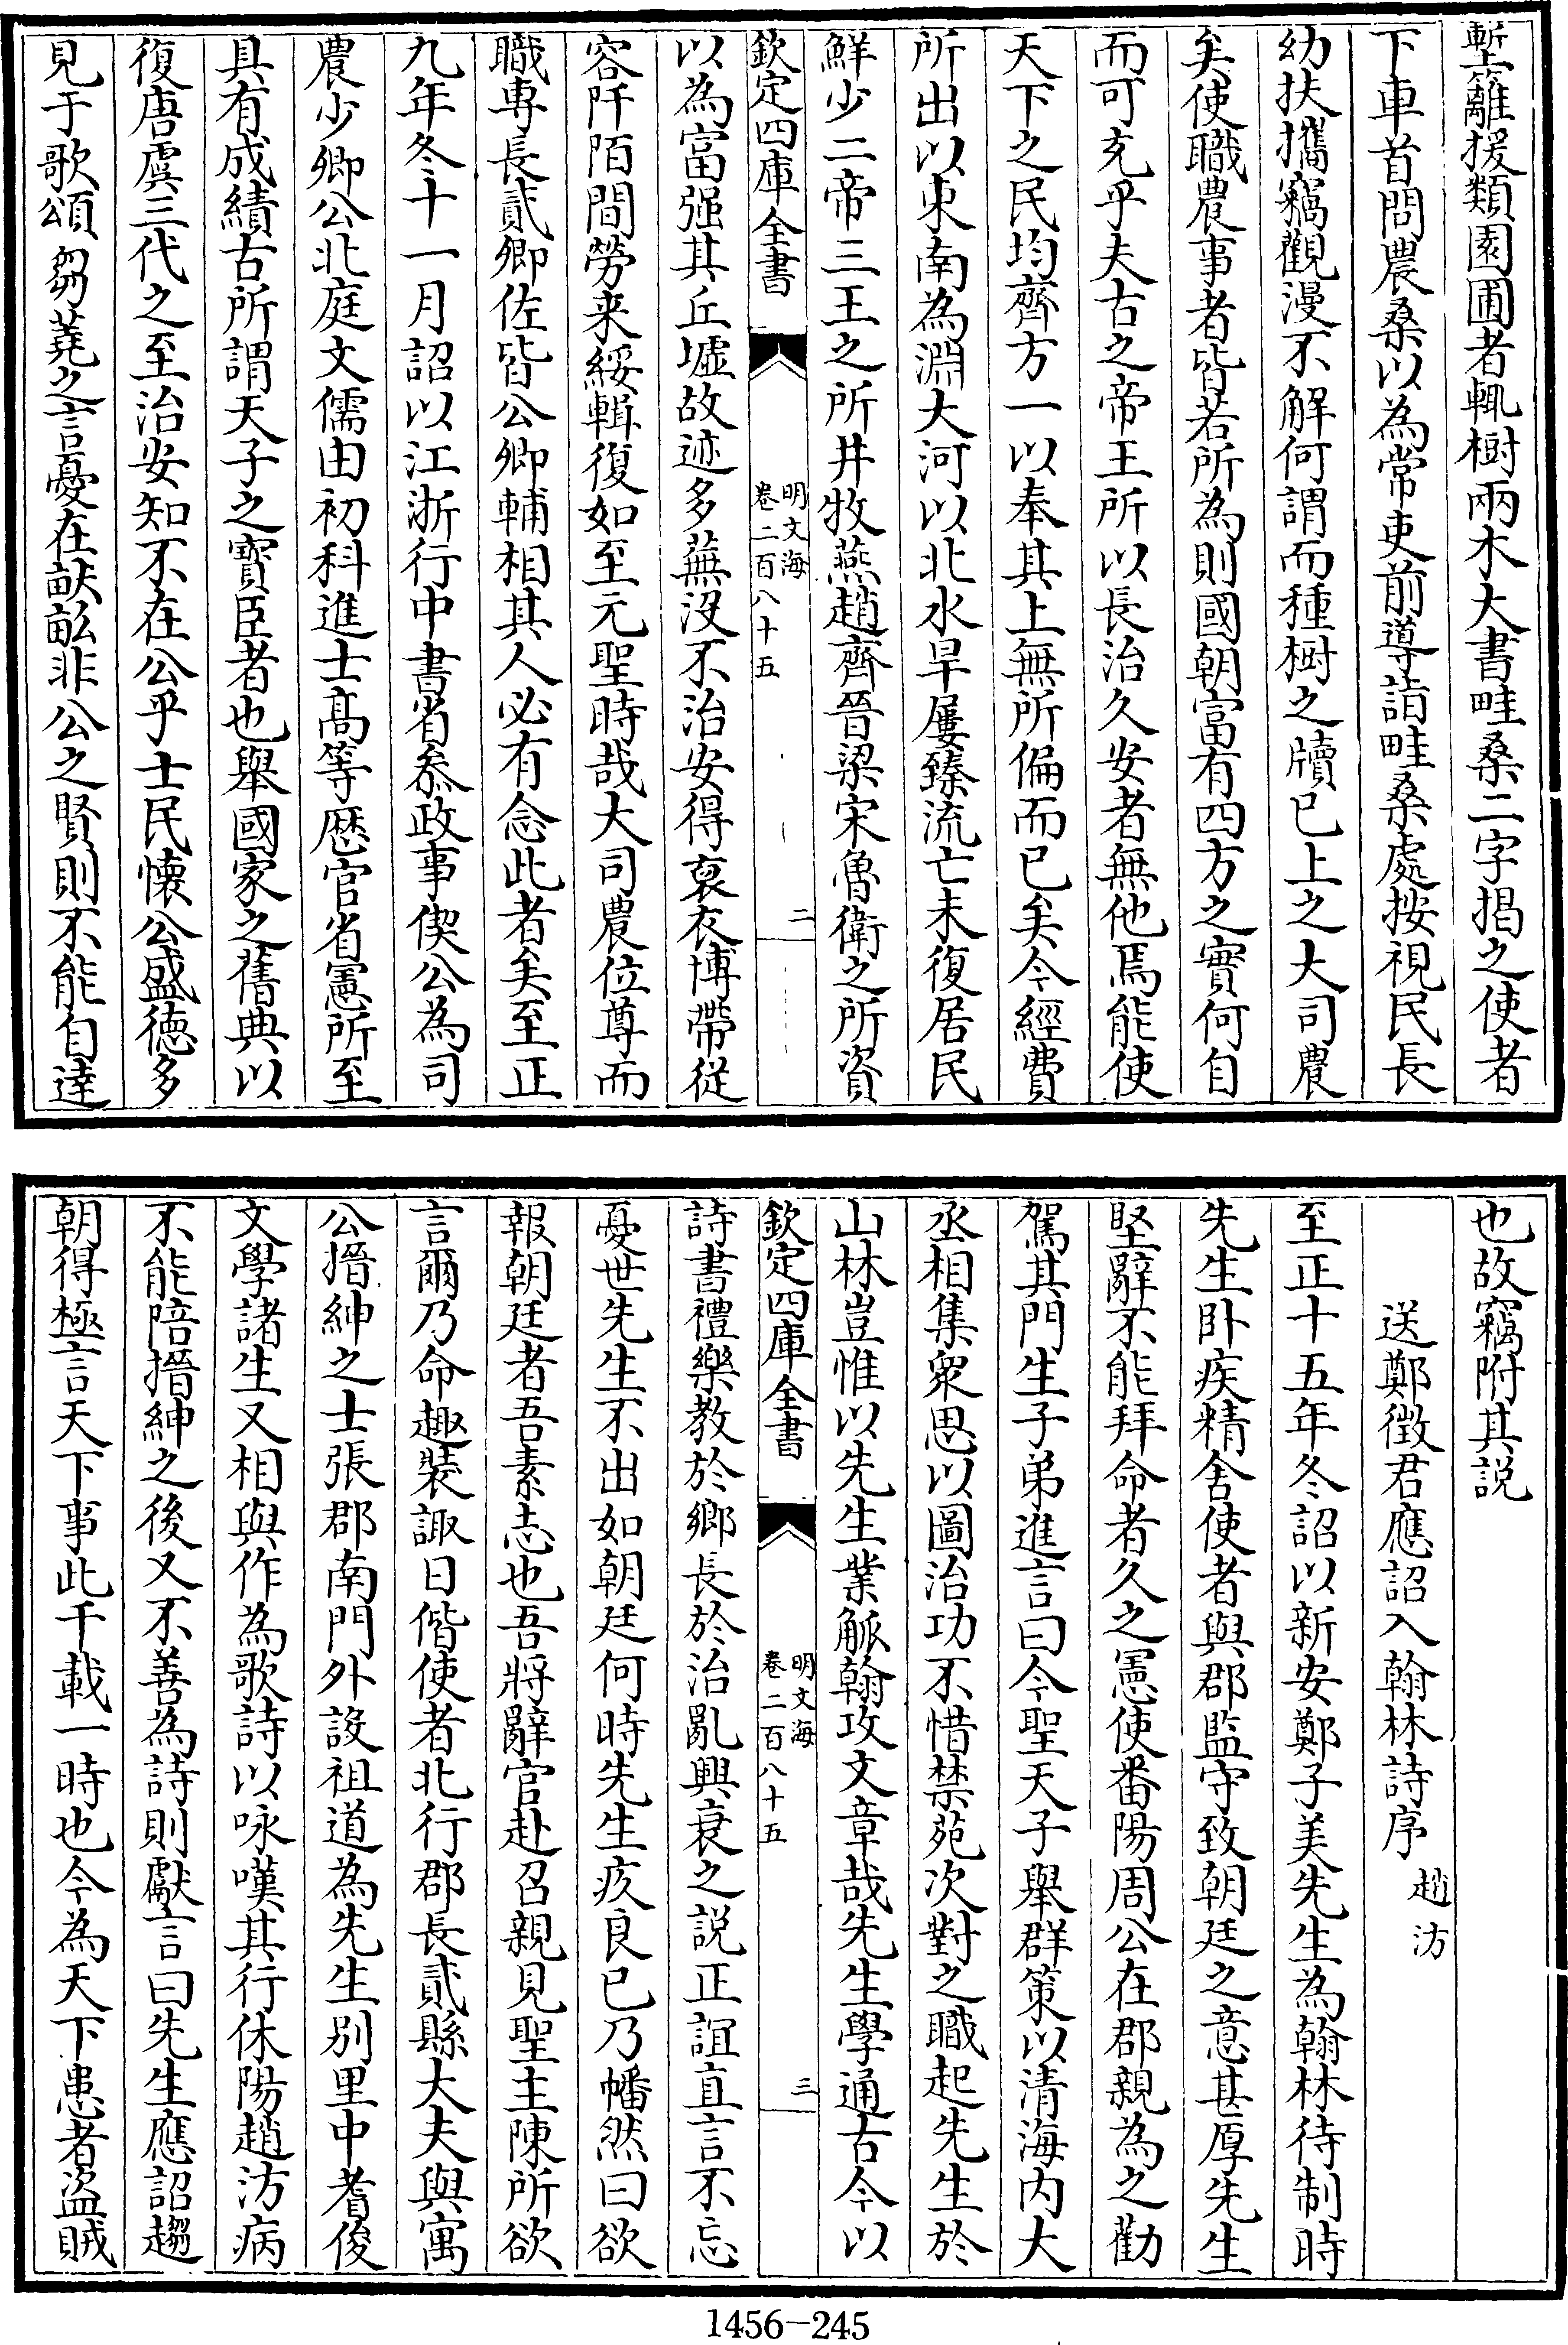 塹籬援類園圃者輒樹兩木大書畦桑二字掲之使者
下車首問農桑以為常吏前導詣畦桑處按視民長
幼扶攜竊觀漫不解何謂而種樹之牘已上之大司農
矣使職農事者皆若所為則國朝富有四方之實何自
而可充乎夫古之帝王所以長治久安者無他焉能使
天下之民均齊方一以奉其上無所偏而已矣今經費
所出以東南為淵大河以北水旱屢臻流亡未復居民
鮮少二帝三王之所井牧燕趙齊晉梁宋魯衛之所資
欽定四庫全書
明文海
卷二百八十五
二
以為富强其丘墟故迹多蕪沒不治安得裒衣博帶從
容阡陌間勞来綏輯復如至元聖時哉大司農位尊而
職専長貳卿佐皆公卿輔相其人必有念此者矣至正
九年冬十一月詔以江浙行中書省叅政事偰公為司
農少卿公北庭文儒由初科進士髙等歴官省憲所至
具有成績古所謂天子之寳臣者也舉國家之舊典以
復唐虞三代之至治安知不在公乎士民懐公盛德多
見于歌頌芻蕘之言憂在畎畝非公之賢則不能自達
也故竊附其説
送鄭徴君應詔入翰林詩序
趙汸
至正十五年冬詔以新安鄭子美先生為翰林待制時
先生卧疾精舍使者與郡監守致朝廷之意甚厚先生
堅辭不能拜命者久之憲使番陽周公在郡親為之勸
駕其門生子弟進言曰今聖天子舉群策以清海内大
丞相集衆思以圖治功不惜禁苑次對之職起先生於
山林豈惟以先生業觚翰攻文章哉先生學通古今以
欽定四庫全書
明文海
卷二百八十五
三
詩書禮樂教於鄉長於治亂興衰之説正誼直言不忘
憂世先生不出如朝廷何時先生疾良已乃幡然曰欲
報朝廷者吾素志也吾將辭官赴召親見聖主陳所欲
言爾乃命趣装諏日偕使者北行郡長貳縣大夫與寓
公搢紳之士張郡南門外設祖道為先生别里中耆俊
文學諸生又相與作為歌詩以咏嘆其行休陽趙汸病
不能陪搢紳之後又不善為詩則獻言曰先生應詔趨
朝得極言天下事此千載一時也今為天下患者盜賊
1456-245